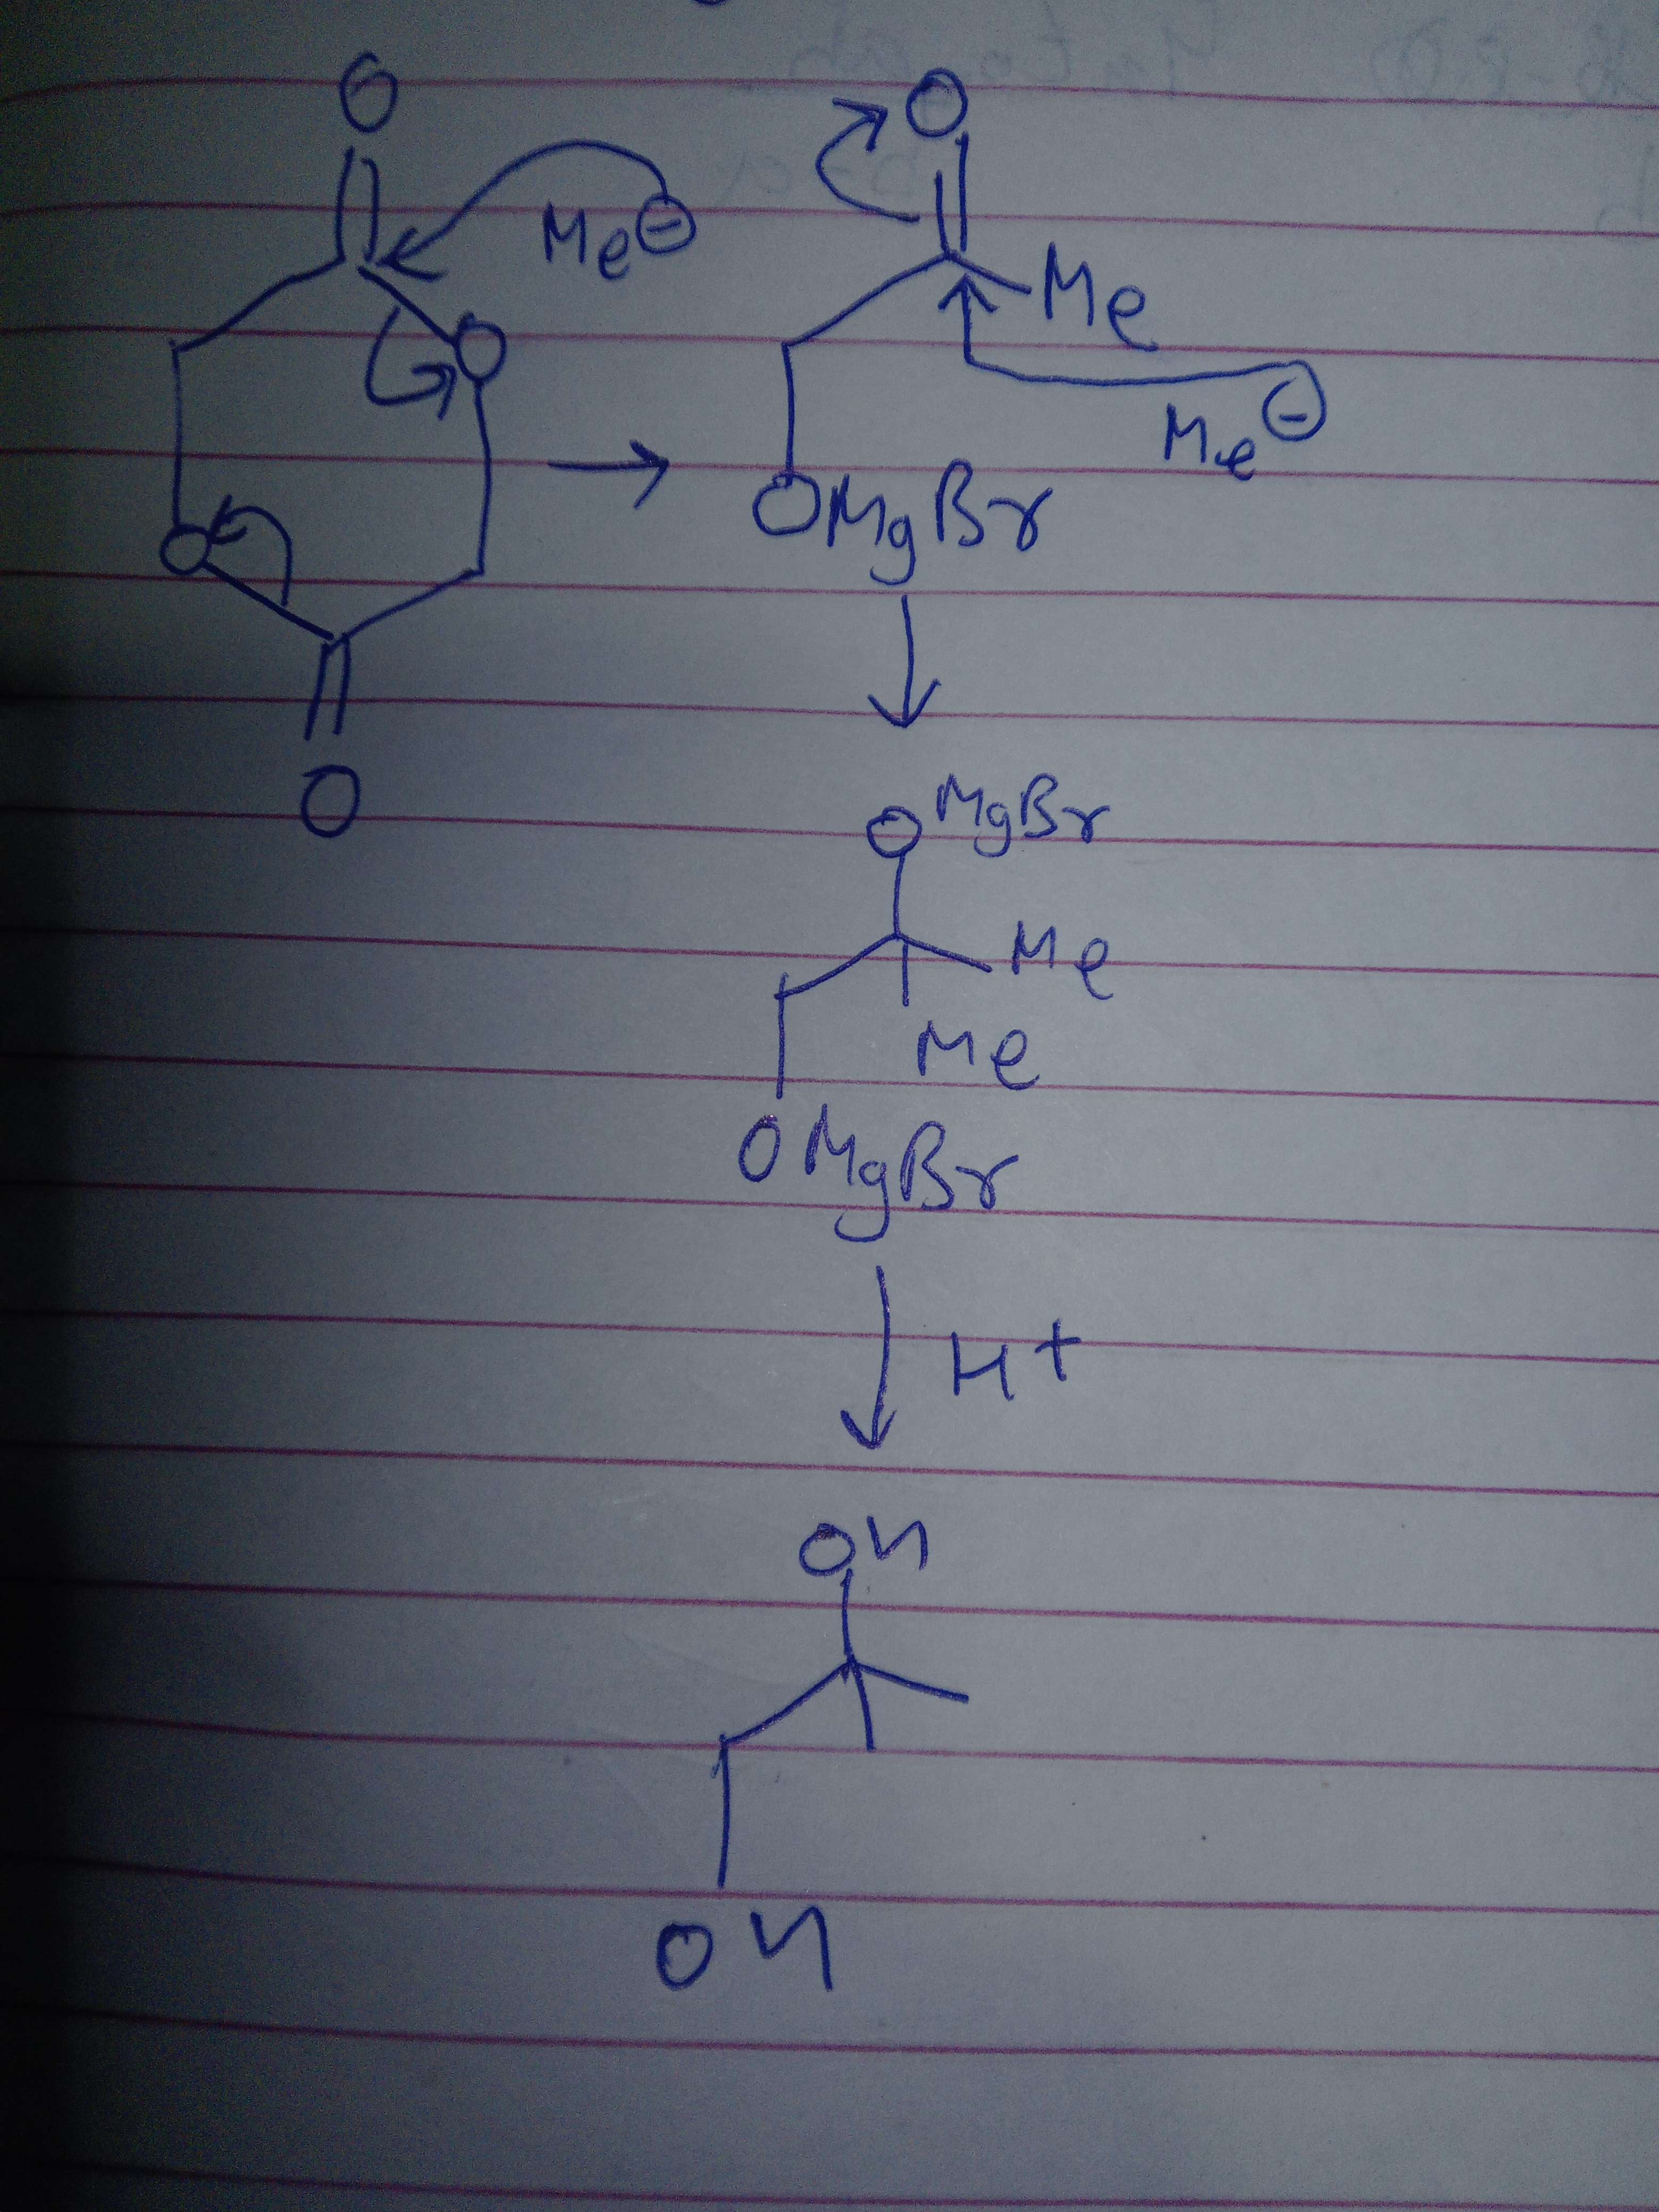 O
O
Me⊖
Me
O
Me⊖
O
OMgBr
O
OMgBr
Me
Me
OMgBr
H+
OH
OH